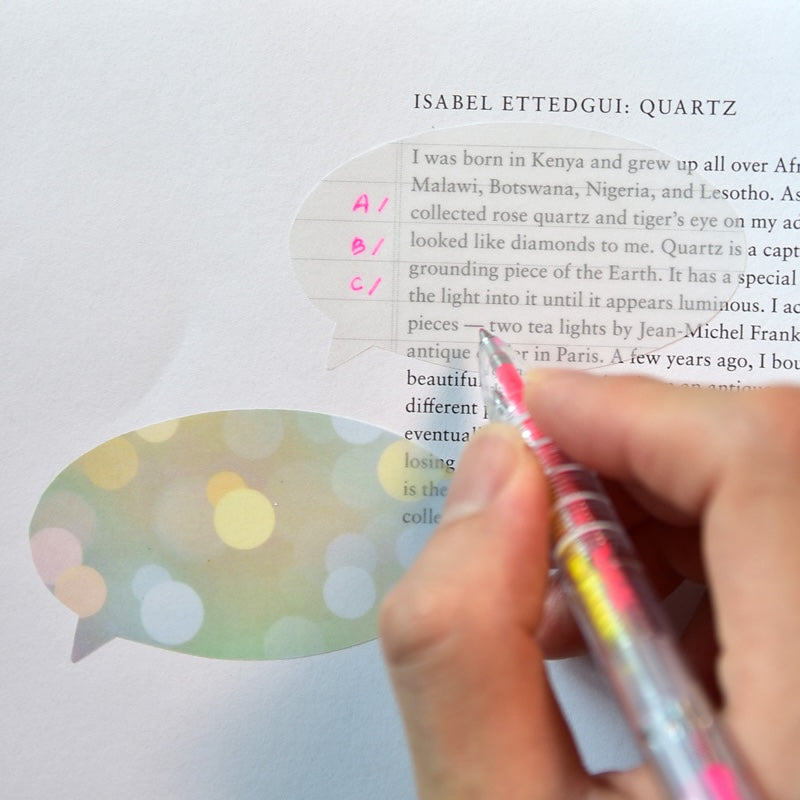 ISABEL ETTEDGUI: QUARTZ
I was born in Kenya and grew up all over Afr
Malawi, Botswana, Nigeria, and Lesotho. As
A/
collected rose quartz and tiger's eye on my ad
B/
looked like diamonds to me. Quartz is a capt
grounding piece of the Earth. It has a special
C/
the light into it until it appears luminous. I ac
pieces — two tea lights by Jean-Michel Frank
antique in Paris. A few years ago, I bou
beautifu an antiqu
different
eventual
losing
is the
colle